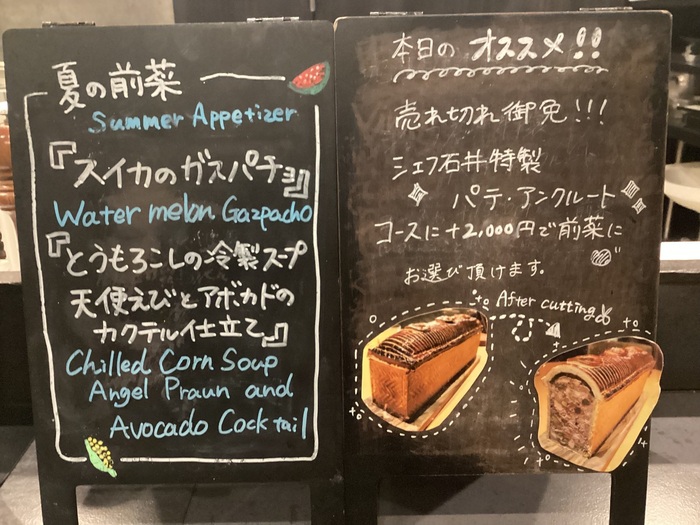 夏の前菜
Summer Appetizer
『スイカのガスパチョ』
Water melon Gazpacho
『とうもろこしの冷製スープ
天使えびとアボカドの
カクテル仕立て』
Chilled Corn Soup
Angel Praun and
Avocado Cocktail
本日の オススメ!!
売れ切れ御免!!!
シェフ石井特製
パテ・アンクルート
コースに+2,000円で前菜に
お選び頂けます。
After cutting